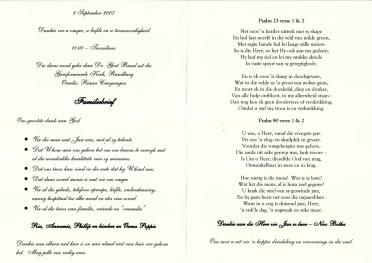 2 September 2007
Dankie vir u omgee, u liefde en u teenwoordigheid
11:00 – Troosdiens
Die diens word gelei deur Ds. Gert Breed uit die
Gereformeerde Kerk, Randburg
Familiebrief
Ons grootste dank aan God
Vir die mens wat Jan was, met sy talente
Dat U hom aan ons gegee het om van hierdie te vermy met
al die wonderlike kwaliteite van sy menswees.
Dat ons troos kan vind in die wete dat hy U kind was
Dat daar soveel mense is wat vir ons omgee
Vir al die gebede, telefoon oproepe, liefde, ondersteuning,
Vir al die trane van familie, vriende en "vreemde"
Ria, Annamie, Phillip en kinders en Ouma Poppie
Dankie aan elkeen wat hier is en aan almal wat van huis vir gebed
het. Mag julle reis veilig wees.
Psalm 23 verse 1 & 2
Net soos 'n herder uittrek met sy skape
En hul laat wei in die veld van milde groen,
Met sagte hande hul lei langs stille waters
So is die Here, so het Hy ook aan my gedoen;
Hy laaf my siel en lei my smalle skrede
In vaste spoor van sy geregtigheid.
En is ek soos 'n skaap in doodsgevare,
Wat in die velde as 'n prooi van wolwe gaan,
En moet ek in die doodsdal, diep en donker,
Van alle hulp ontbloot, in my alleenheid staan -
Dan nog ken ek geen doodsvrees of verskrikking,
Omdat u staf my troos is en verkwikking.
Psalm 90 verse 1 & 2
U was, o Heer, vanaf die vroegste jare
Vir ons 'n vlug- en skuilplek in gevare.
Voordat die rotsgebergtes was gebore,
Die aarde uit niks geroep was, lank tevore –
Is U nie o Heer, dieselfde God van mag,
Onwankelbaar in wese en in krag.
Hoe nietig is die mens! Wat is sy lewe!
Wat het die mens, al is hom veel gegewe!
U kruik die steel van sy gewiwelde jare,
En hy paan heen net soos die najaarsblare.
Want in u oog is duisend jaar, Here,
Dankie aan die Here vir Jan se lewe – Nico Botha
Ons nooi u uit vir 'n koppie drinkding en verversings in die saal.